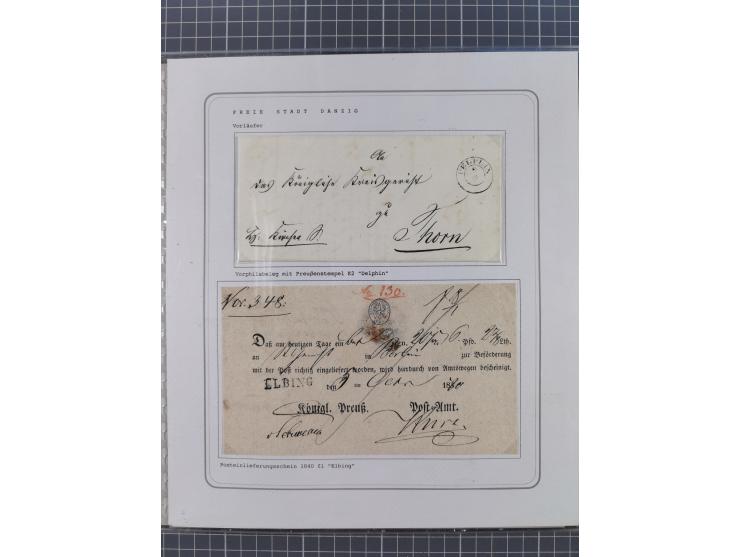 FREIE STADT DANZIG
Vorläufer
An
das Königliche Kreisgericht
zu
Thorn
PELPLIN
Vorphilabeleg mit Preußenstempel K2 "Delphin"
130.
Nor. 348.
Daß am heutigen Tage ein Pfd. Lth.
an in Berlin zur Beförderung
mit der Post richtig eingeliefert worden, wird hierdurch von Amtswegen bescheinigt.
ELBING den 3 18
Königl. Preuß. Post-Amt.
Posteinlieferungsschein 1840 L1 "Elbing"